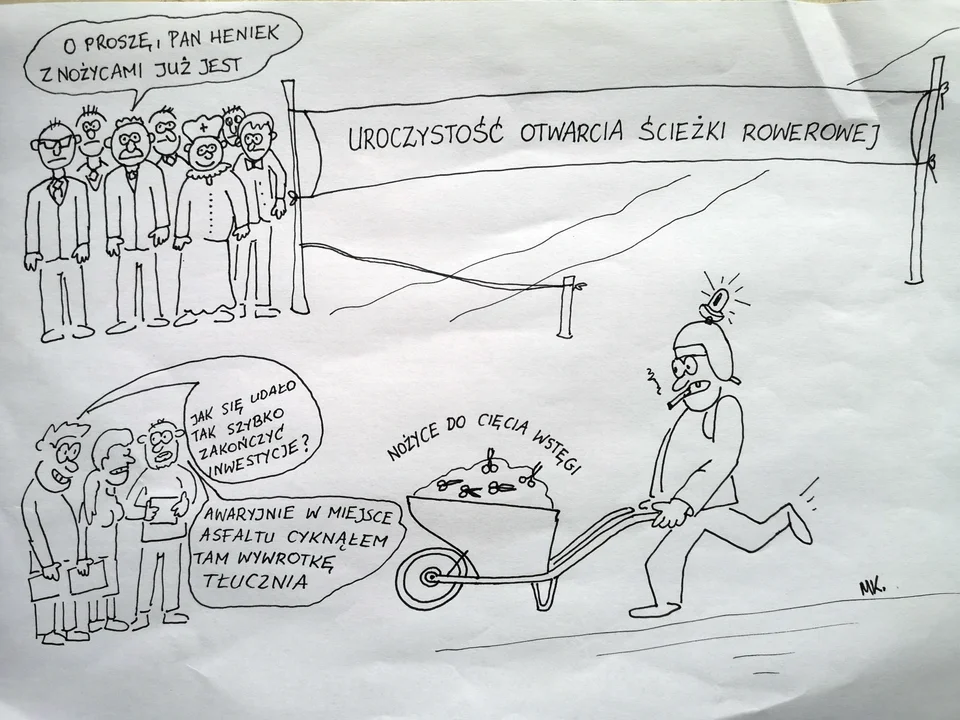 O PROSZĘ, PAN HENIEK
Z NOŻYCAMI JUŻ JEST
UROCZYSTOŚĆ OTWARCIA ŚCIEŻKI ROWEROWEJ
JAK SIĘ UDAŁO
TAK SZYBKO
ZAKOŃCZYĆ
INWESTYCJĘ?
AWARYJNIE W MIEJSCE
ASFALTU CYKNĄŁEM
TAM WYWROTKĘ
TŁUCZNIA
NOŻYCE DO CIĘCIA WSTĘGI
MK.